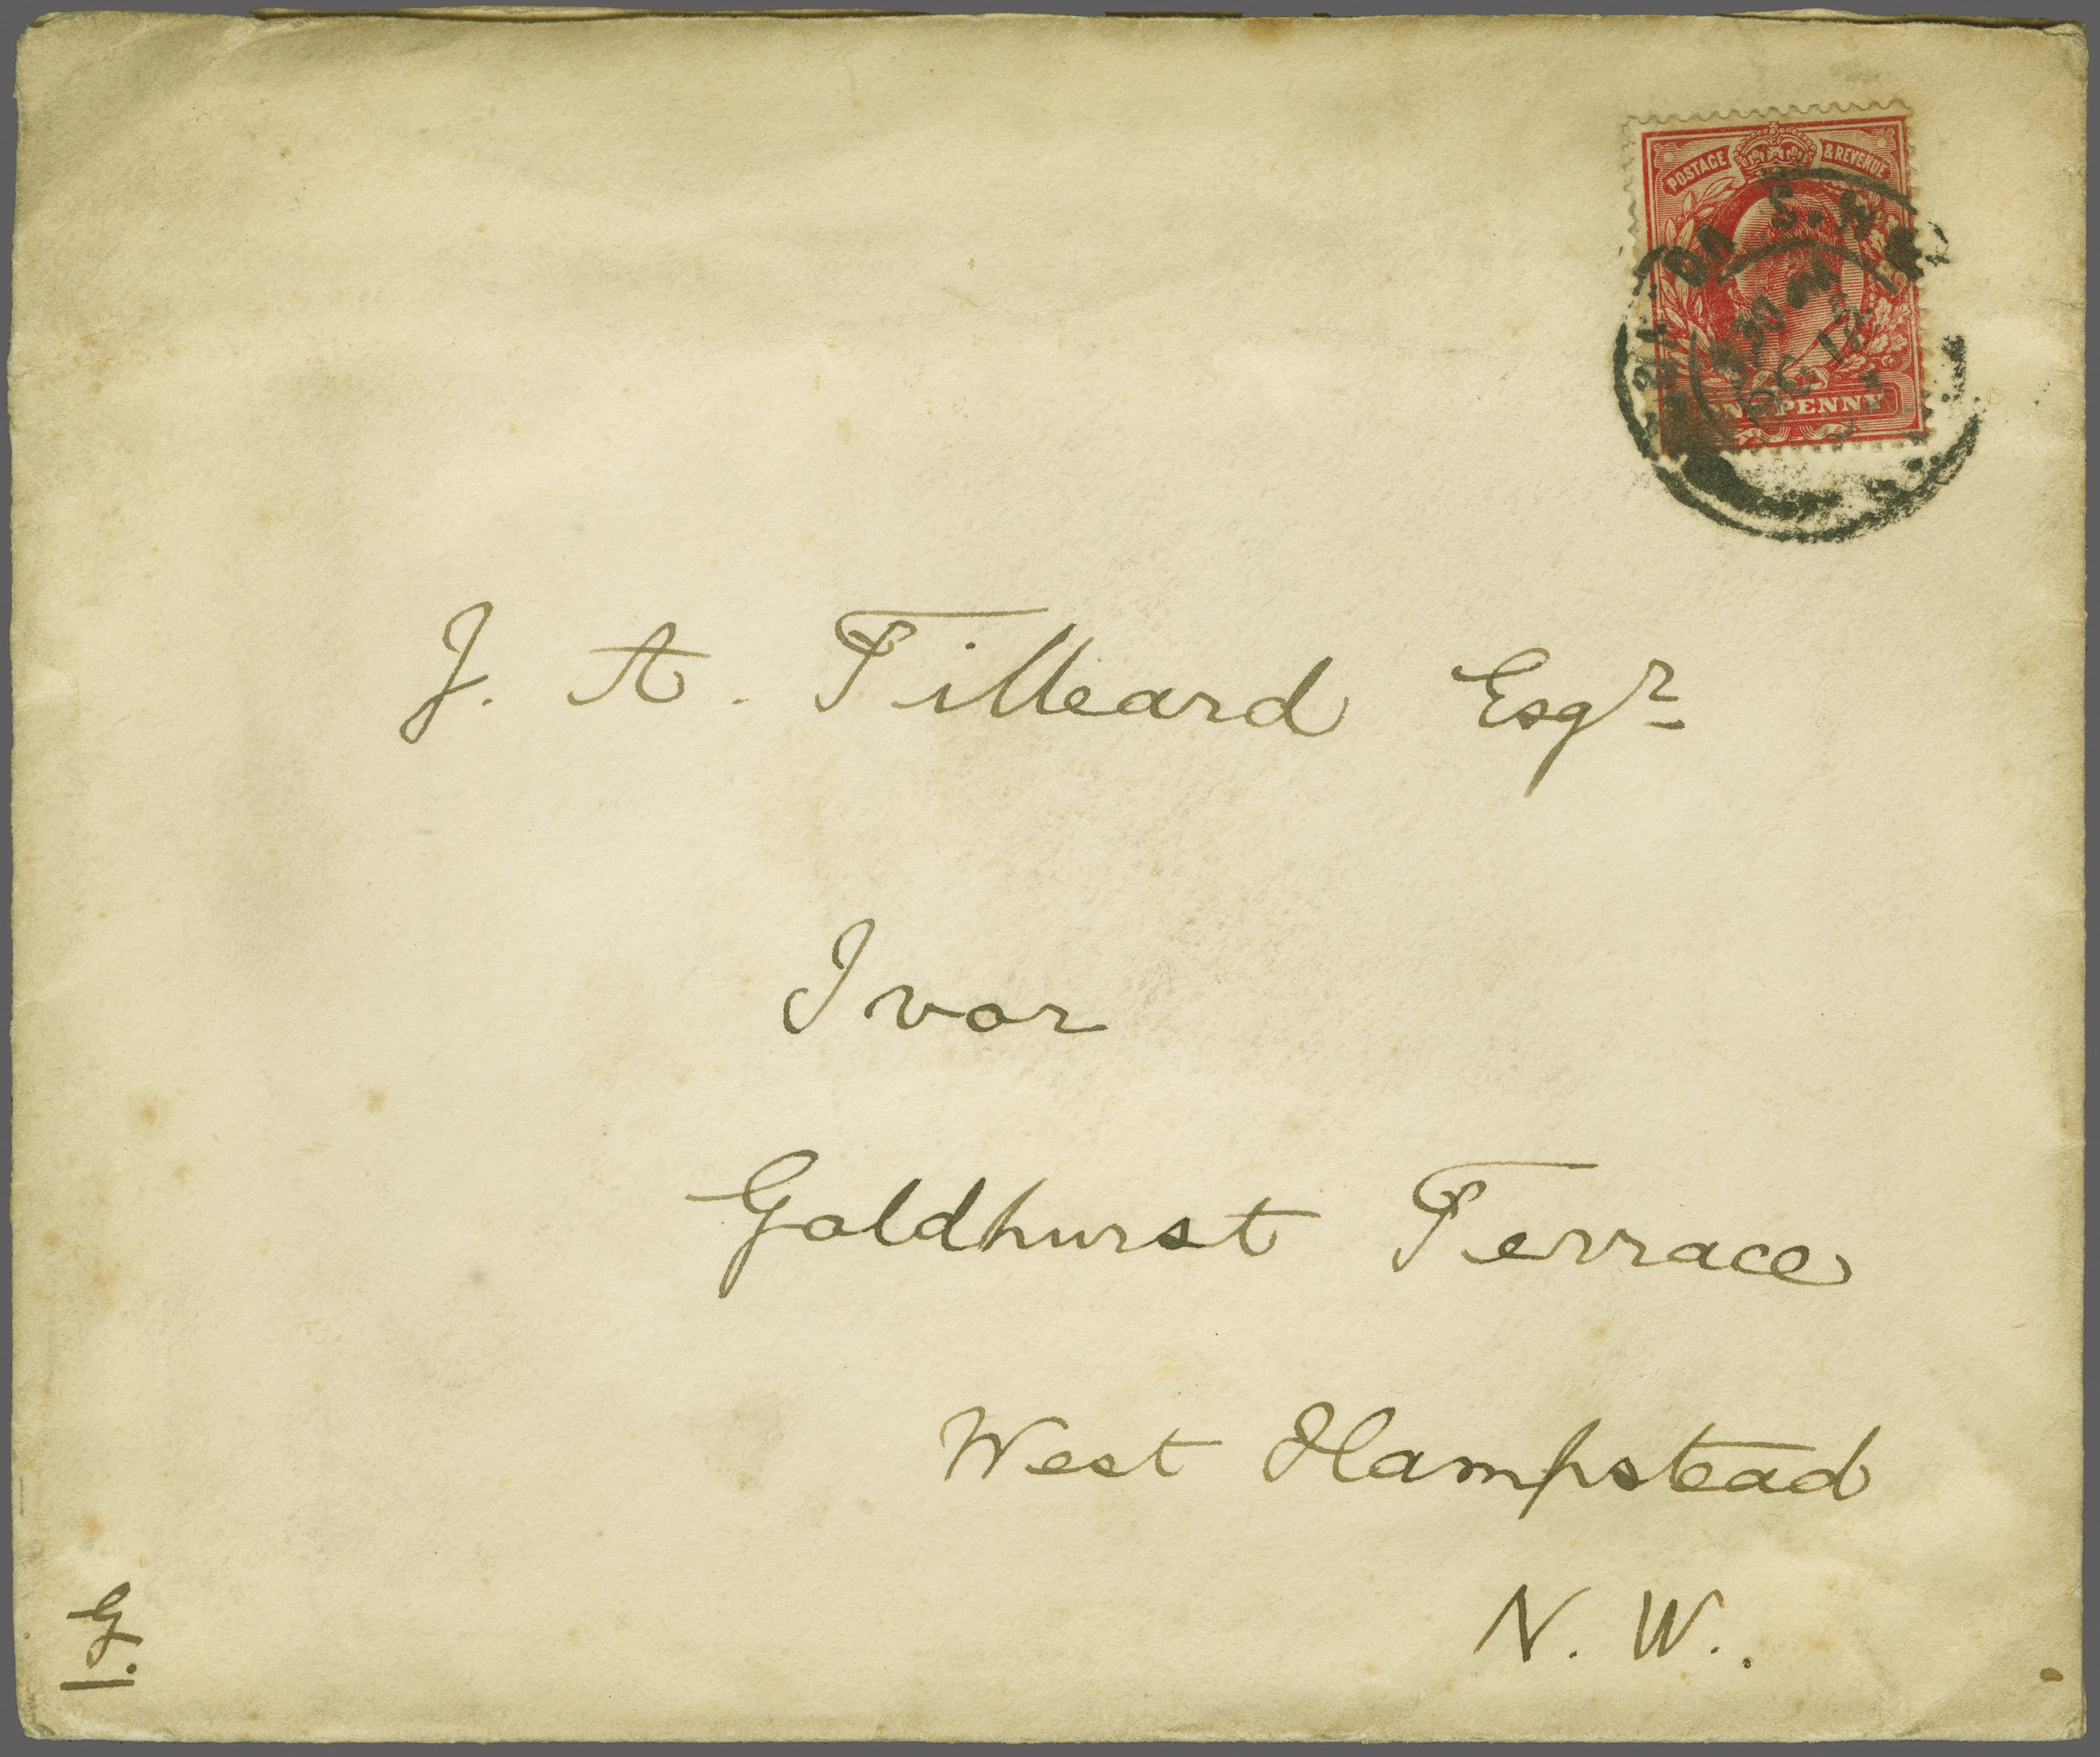 POSTAGE & REVENUE
S.W
DEC 12
ONE PENNY
J. A. Tilleard Esqr
Ivor
Goldhurst Terrace
West Hampstead
N. W.
G.